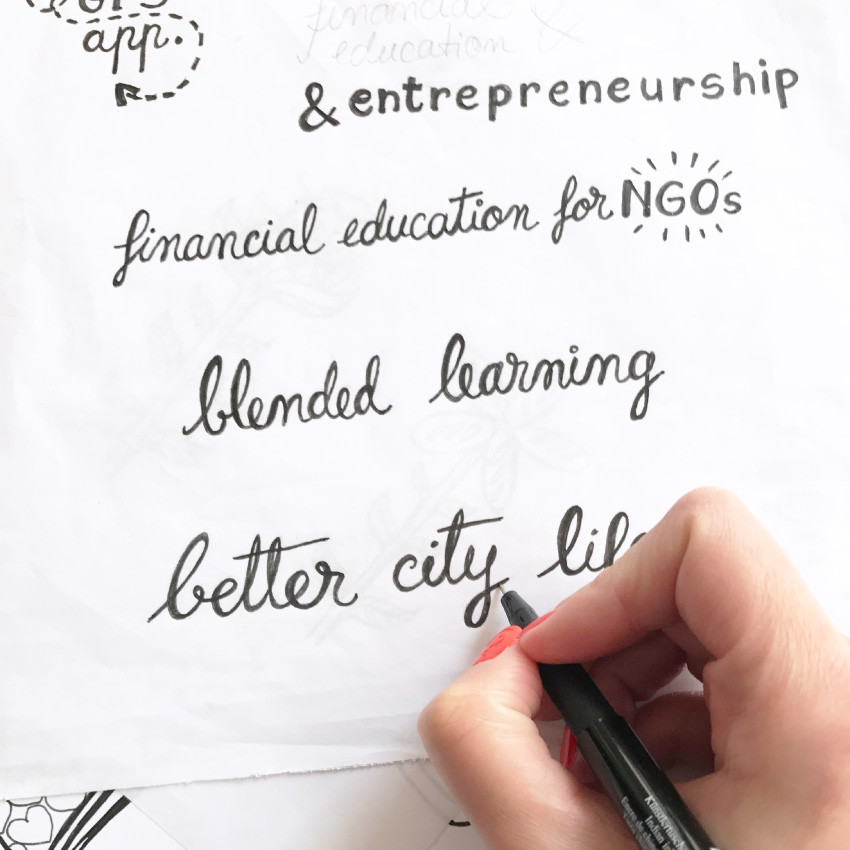 app.
financial &
education
& entrepreneurship
financial education for NGOs
blended learning
better city